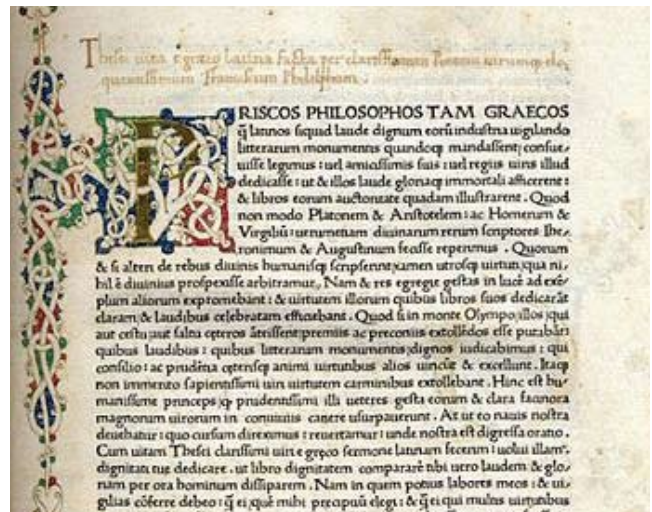 Thesei uita e greco latina facta per clarissimum
RISCOS PHILOSOPHOS TAM GRAECOS
q̃ latinos siquid laude dignum eorũ industria uigilando
litterarum monumentis quandoqȝ mandassent; consue,
uisse legimus: uel amicissimis suis: uel regiis uiris illud
dedicasse: ut & illos laude gloriaqȝ immortali afficerent:
& libros eorum auctoritate quadam illustrarent. Quod
non modo Platonem & Aristotelem: ac Homerum &
Virgiliũ: uerumetiam diuinarum rerum scriptores Ihe,
ronimum & Augustinum fecisse reperimus. Quorum
& si alteri de rebus diuinis humanisqȝ scripserint; tamen utrosqȝ uirtuti; qua ni,
hil ẽ diuinius prospexisse arbitramur. Nam & res egregie gestas in lucẽ ad exẽ,
plum aliorum expromebant: & uirtutem illorum quibus libros suos dedicarãt
claram & laudibus celebratam efficiebant. Quod si in monte Olympo; illos; qui
aut cestu; aut saltu ceteros ãteissent; premiis ac preconiis extollẽdos esse putabãt:
quibus laudibus: quibus litterarum monumentis; dignos iudicabimus: qui
consilio: ac prudẽtia ceterisqȝ animi uirtutibus alios uincũt & excellunt. Itaqȝ
non immerito sapientissimi uiri uirtutem carminibus extollebant. Hinc est hu,
manissime princeps; qȝ prudentissimi illi ueteres gesta eorum & clara facinora
magnorum uirorum in conuiuiis canere usurpauerunt. At ut eo nauis nostra
deuehatur: quo cursum direximus: reuertamur: unde nostra est digressa oratio.
Cum uitam Thesei clarissimi uiri e greco sermone latinam fecerim: uolui illam,
dignitati tue dedicare. ut libro dignitatem compararẽ tibi uero laudem & glo,
riam per ora hominum dissiparem. Nam in quem potius labores meos: & ui,
gilias cõferre debeo: q̃ ei; quẽ mihi precipuũ elegi: & q̃ ei qui multis uirtutibus